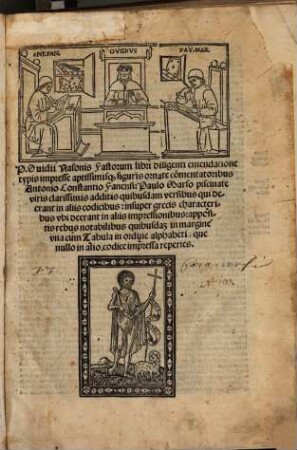 ANT.FAN. OVIDIVS PAV.MAR.
P. Ouidii Nasonis Fastorum libri diligenti emendatione
typis impressi aptissimisq; figuris ornate cōmentatoribus
Antonio Constantio Fanensi: Paulo Marso piscinate
viris clarissimis additis quibusdam versibus qui de
erant in aliis codicibus: insuper grecis characteri
bus vbi deerant in aliis impressionibus: appositi
tis rebus notabilibus quibusdaz in margine
vna cum Tabula in ordine alphabeti: que
nullo in alio codice impressa reperies.